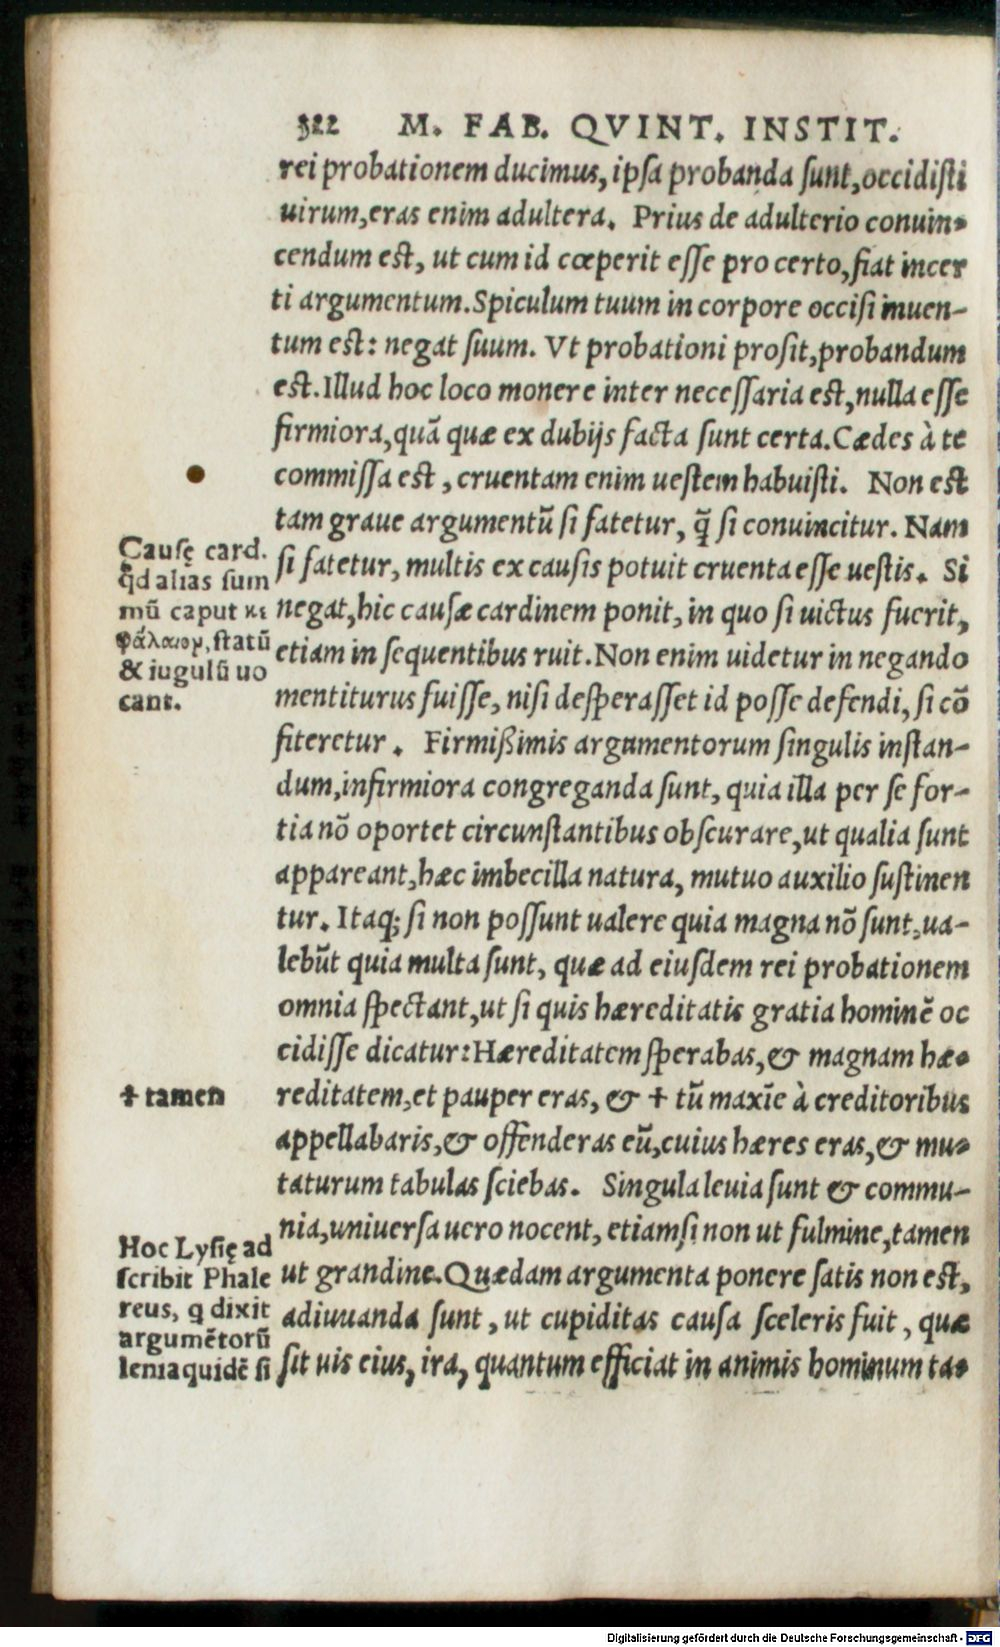 322 M. FAB. QVINT. INSTIT.
rei probationem ducimus, ipsa probanda sunt, occidisti
uirum, eras enim adultera. Prius de adulterio conuin-
cendum est, ut cum id cœperit esse pro certo, fiat incer
ti argumentum. Spiculum tuum in corpore occisi inuen-
tum est: negat suum. Vt probationi prosit, probandum
est. Illud hoc loco monere inter necessaria est, nulla esse
firmiora, quã quæ ex dubijs facta sunt certa. Cædes à te
commissa est, cruentam enim uestem habuisti. Non est
tam graue argumentũ si fatetur, q̃ si conuincitur. Nam
si fatetur, multis ex causis potuit cruenta esse uestis. Si
negat, hic causæ cardinem ponit, in quo si uictus fuerit,
etiam in sequentibus ruit. Non enim uidetur in negando
mentiturus fuisse, nisi desperasset id posse defendi, si cõ
fiteretur. Firmißimis argumentorum singulis instan-
dum, infirmiora congreganda sunt, quia illa per se for-
tia nõ oportet circunstantibus obscurare, ut qualia sunt
appareant, hæc imbecilla natura, mutuo auxilio sustinen
tur. Itaq; si non possunt ualere quia magna nõ sunt, ua-
lebũt quia multa sunt, quæ ad eiusdem rei probationem
omnia spectant, ut si quis hæreditatis gratia hominẽ oc
cidisse dicatur: Hæreditatem sperabas, & magnam hæ-
reditatem, et pauper eras, & ☩ tũ maxĩe à creditoribus
appellabaris, & offenderas eũ, cuius hæres eras, & mu-
taturum tabulas sciebas. Singula leuia sunt & commu-
nia, uniuersa uero nocent, etiamsi non ut fulmine, tamen
ut grandine. Quædam argumenta ponere satis non est,
adiuuanda sunt, ut cupiditas causa sceleris fuit, quæ
sit uis eius, ira, quantum efficiat in animis hominum ta-
Causę card.
qd alias sum
mũ caput κε
φάλαιον, statũ
& iugulũ uo
cant.
☩ tamen
Hoc Lysię ad
scribit Phale
reus, q dixit
argumẽtorũ
lenia quidẽ si
Digitalisierung gefördert durch die Deutsche Forschungsgemeinschaft - DFG